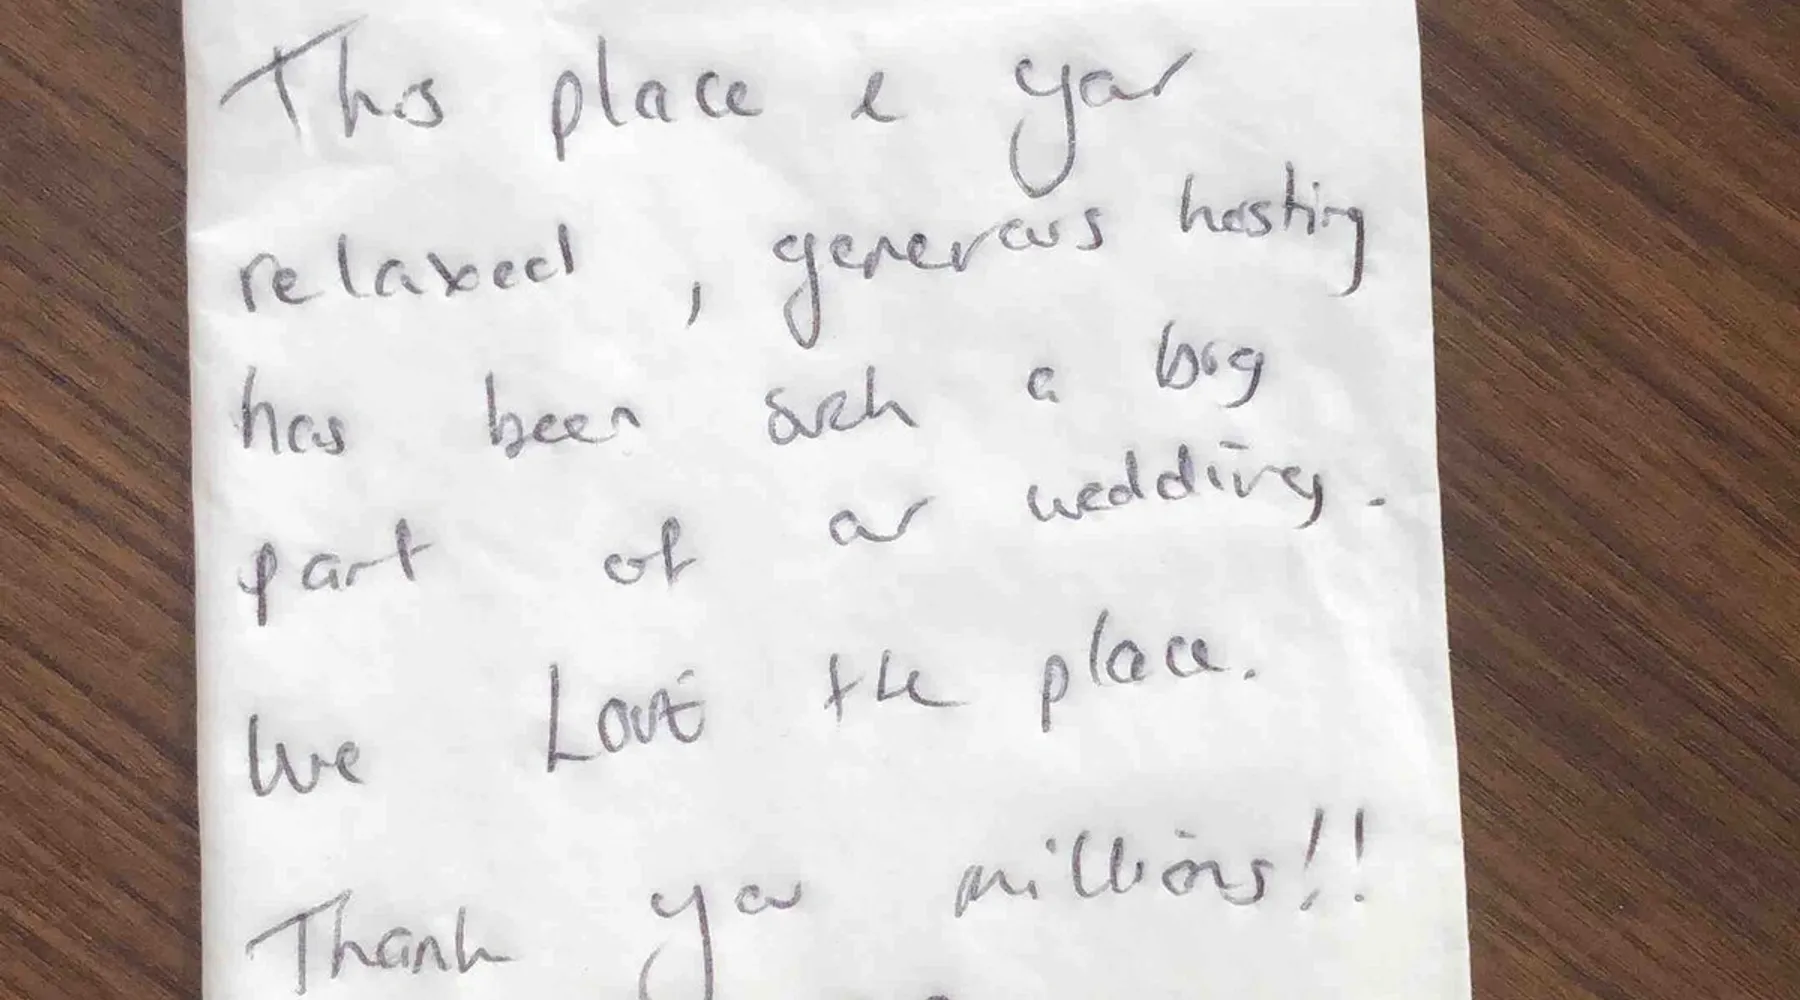 This place & your
relaxed, generous hosting
has been such a big
part of our wedding.
We Love the place.
Thank you millions!!